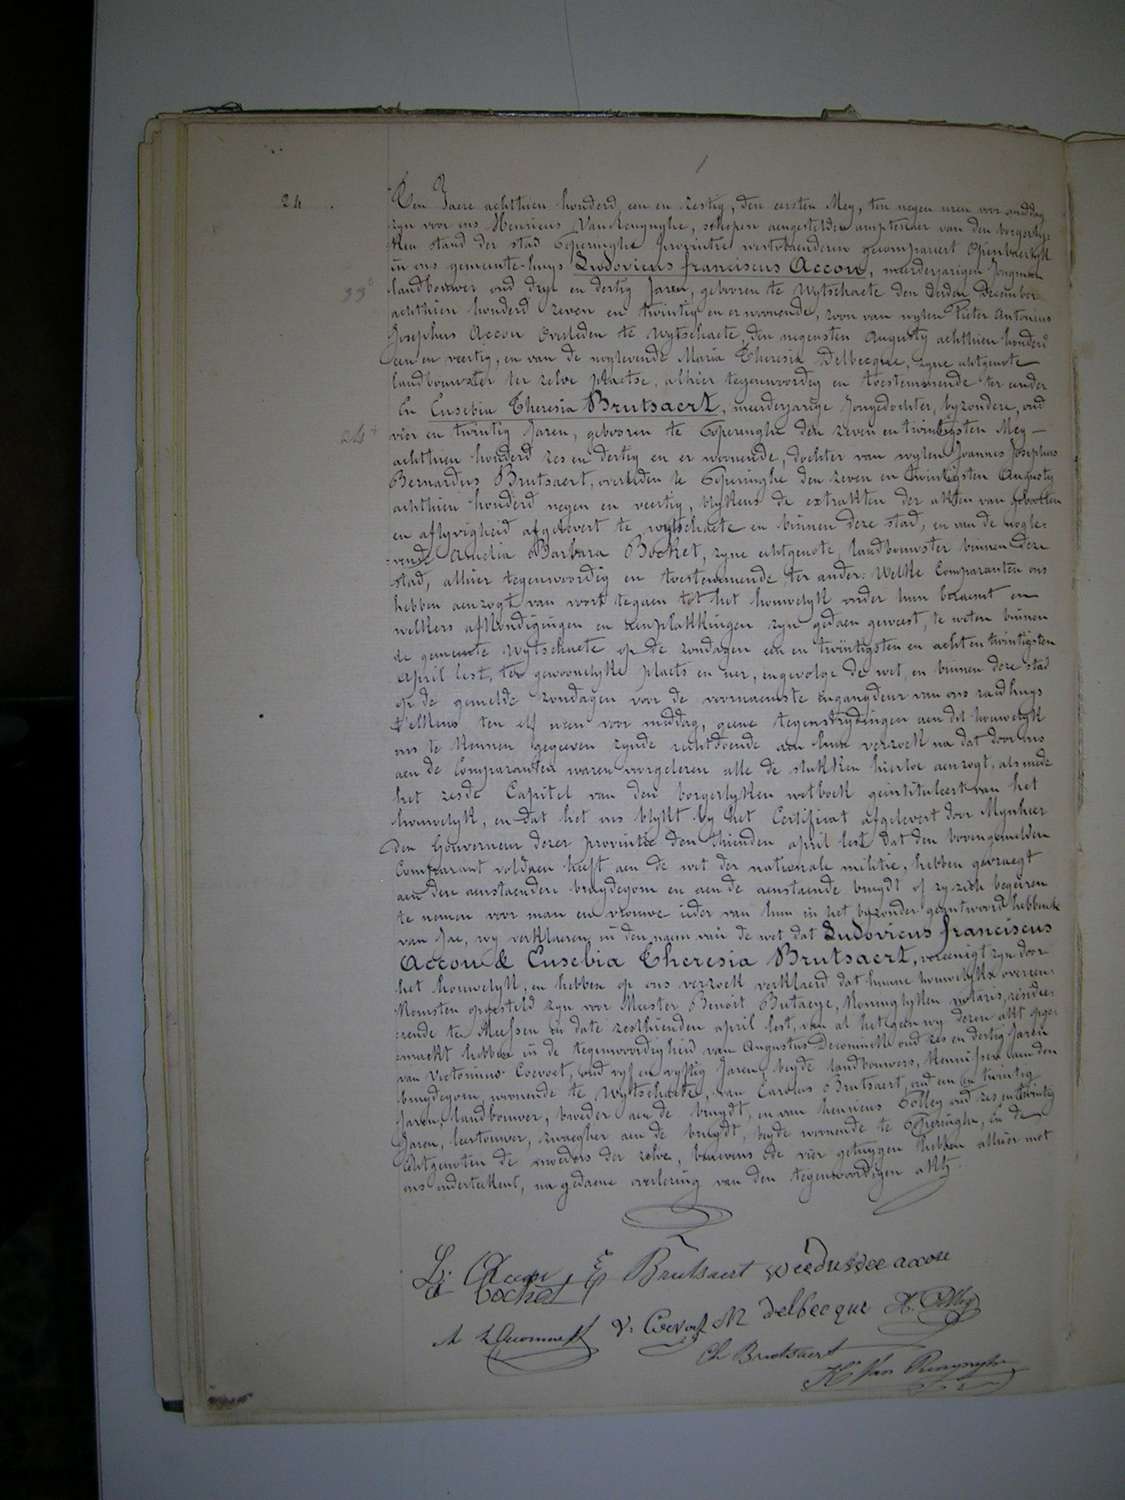 24.
Den Jaere achthien honderd een en zestig, den eersten Mey, ten negen uren voor middag
zyn voor ons Henricus Van Renynghe, schepen aengestelden ampteneer van den borgerly-
ken stand der stad Poperinghe provintie westvlaenderen gecompareert openbaerlyk
in ons gemeente-huys Ludovicus franciscus Accou, meerderjarigen Jongman
33
landbouwer oud dryе en dertig Jaren, gebooren te Wytschaete den derden December
achthien honderd zeven en twintig en er woonende, zoon van wylen Pieter Antonius
Josephus Accou overleden te Wytschaete, den negensten Augusty achthien honderd
een en veertig, en van de noglevende Maria Theresia Delbecque, zyne echtgenote
landbouwster ter zelve plaetse, alhier tegenwoordig en toestemmende ter eender
En Eusebia Theresia Brutsaert, meerderjarige Jongedochter, byzondere, oud
24
vier en twintig Jaren, gebooren te Poperinghe den zeven en twintigsten Mey
achthien honderd zes en dertig en er woonende, dochter van wylen Joannes Josephus
Bernardus Brutsaert, overleden te Poperinghe den zeven en twintigsten Augusty
achthien honderd negen en veertig, blykens de extrakten der akten van geboorten
en aflyvigheid afgelevert te wytschaete en binnen deze stad, en van de nogle-
vende Amelia Barbara Bocket, zyne echtgenote, landbouwster binnen deze
stad, alhier tegenwoordig en toestemmende ter ander: Welke Comparanten ons
hebben aenzogt van voort tegaen tot het houwelyk onder hun beraemt en
welkers afkondigingen en aenplakkingen zyn gedaen geweest, te weten binnen
de gemeente Wytschaete op de zondagen een en twintigsten en acht en twintigsten
april lest, ter gewoonelyke plaets en uer, ingevolge de wet, en binnen deze stad
op de gemelde zondagen voor de voornaemste ingangdeur van ons raedhuys
t'elkens ten elf uren voor middag, geene tegenstrydingen aen dit houwelyk
ons te kennen gegeeven zynde rechtdoende aen hun verzoek na dat door ons
aen de Comparanten waren voorgelezen alle de stukken hiertoe aenzogt, als mede
het zesde Capitel van den borgerlyken wetboek geintituleert van het
houwelyk, en dat het ons blykt by het Certificat afgelevert door Mynheer
den Gouverneur dezer provintie den thienden april lest dat den bovengemelden
Comparant voldaen heeft aen de wet der nationale militie, hebben gevraegt
aen den aenstaenden bruydegom en aen de aenstaende bruydt of zy zich begeiren
te nemen voor man en vrouwe ieder van hun in het byzonder geantwoord hebbende
van Jae, wy verklaeren in den naem van de wet dat Ludovicus franciscus
Accou & Eusebia Theresia Brutsaert, vereenigt zyn door
het houwelyk, en hebben op ons verzoek verklaerd dat hunne houwelyksche overeen-
komsten opgesteld zyn voor Meester Benoit Butaeye, koninglyken notaris, residee-
rende te Meessen in date zesthienden april lest, van al hetgeen wy dezen akt opge-
maekt hebben in de tegenwoordigheid van Augustus Decominck oud zes en dertig Jaren
van Victorinus Coevoet, oud vyf en vyftig Jaren, beyde landbouwers, kennissen aen den
bruydegom, woonende te Wytschaete, van Carolus Brutsaert, oud een en twintig
Jaren, landbouwer, broeder aen de bruydt, en van henricus Polley oud zes en twintig
Jaren, leertouwer, zwaegher aen de bruydt, beyde woonende te Poperinghe, en de
echtgenoten de moeders der zelve, benevens de vier getuygen hebben alhier met
ons onderteekent, na gedaene voorlezing van den tegenwoordigen akt.
L: Accou E Brutsaert weeduwee accou
Bocket
A Decominck V. Coevoet M delbecque H. Polley
Ch Brutsaert
H Van Renynghe